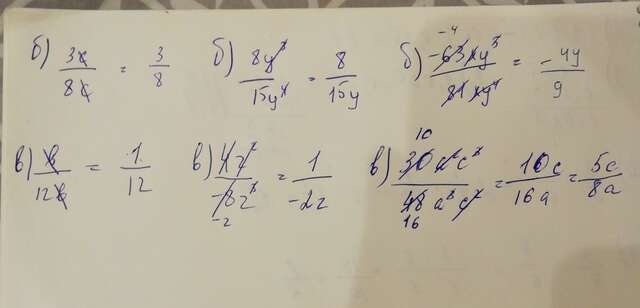 б) 3x/8x = 3/8 б) 8y³/15y⁴ = 8/15y б) -63xy⁵/81xy⁴ = -4y/9
в) b/12b = 1/12 в) 4z²/-8z³ = 1/-2z в) 30a²c³/48a³c² = 10c/16a = 5c/8a